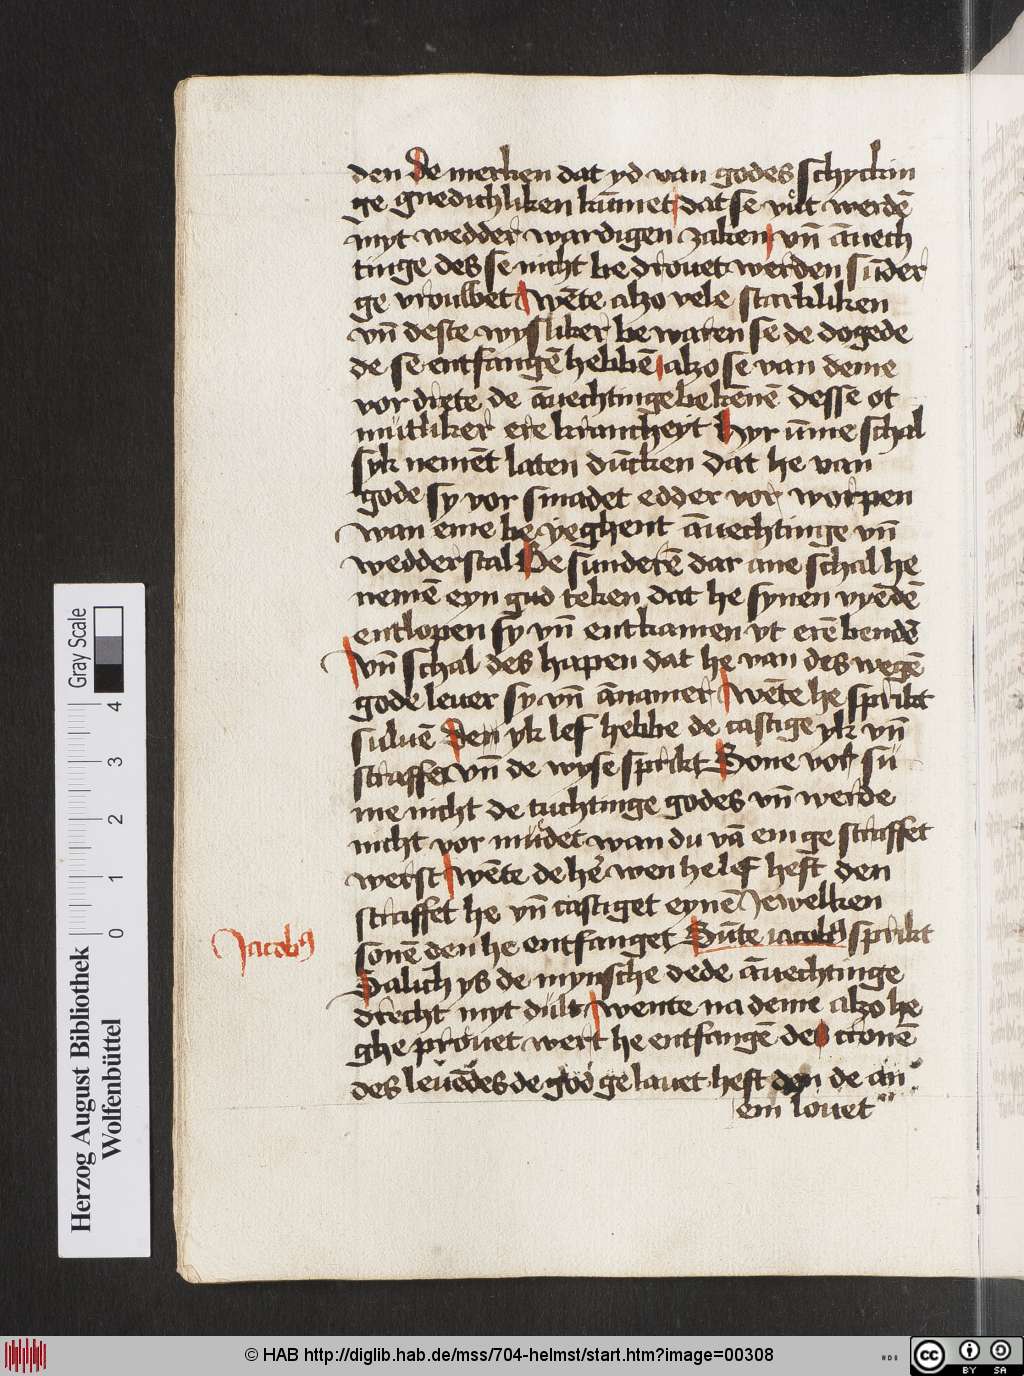 den de merken dat yd van godes schyckin
ge gnedichliken kūmet dat se vůt werdē
myt wedder wardigen zaken vn̄ āuech
tinge des se nicht bedrouet werden sūder
ge vrouwet wēte alzo vele starkliken
vn̄ deste wysliker bewaren se de dogede
de se entfangē hebbē alzo se van deme
vordrete de āuechtinge bekēnē desse ot
mütliker ere krancheyt Hyr ūme schal
syk nemēt laten dūcken dat he van
gode sy vor smadet edder vor worpen
wan eme beyeghent āuechtinge vn̄
wedderstal Besunderē dar ane schal he
nemē eyn gud teken dat he synen vyēdē
entlopen sy vn̄ entkamen vt erē bendē
vn̄ schal des hapen dat he van des wegē
gode leuer sy vn̄ ānamer wēte he sprikt
suluē Den yk lef hebbe de castige yk vn̄
straffet vn̄ de wyse sprikt Sone vor sü
me nicht de tuchtinge godes vn̄ werde
nicht vor müdet wan du vā em ge straffet
werst wēte de her wen he lef heft den
straffet he vn̄ castiget eynē Jewelken
sonē den he entfanget Sūte iacobꝰ sprikt
Jacobꝰ
Salich ys de mynsche dede āuechtinge
drecht myt dült wente na deme alzo he
gheprouet wert he entfangē des cronē
des leuēdes de god ge lauet heft den de an
em louet
Herzog August Bibliothek
Wolfenbüttel
0 1 2 3 4
Gray Scale
© HAB http://diglib.hab.de/mss/704-helmst/start.htm?image=00308
cc BY SA